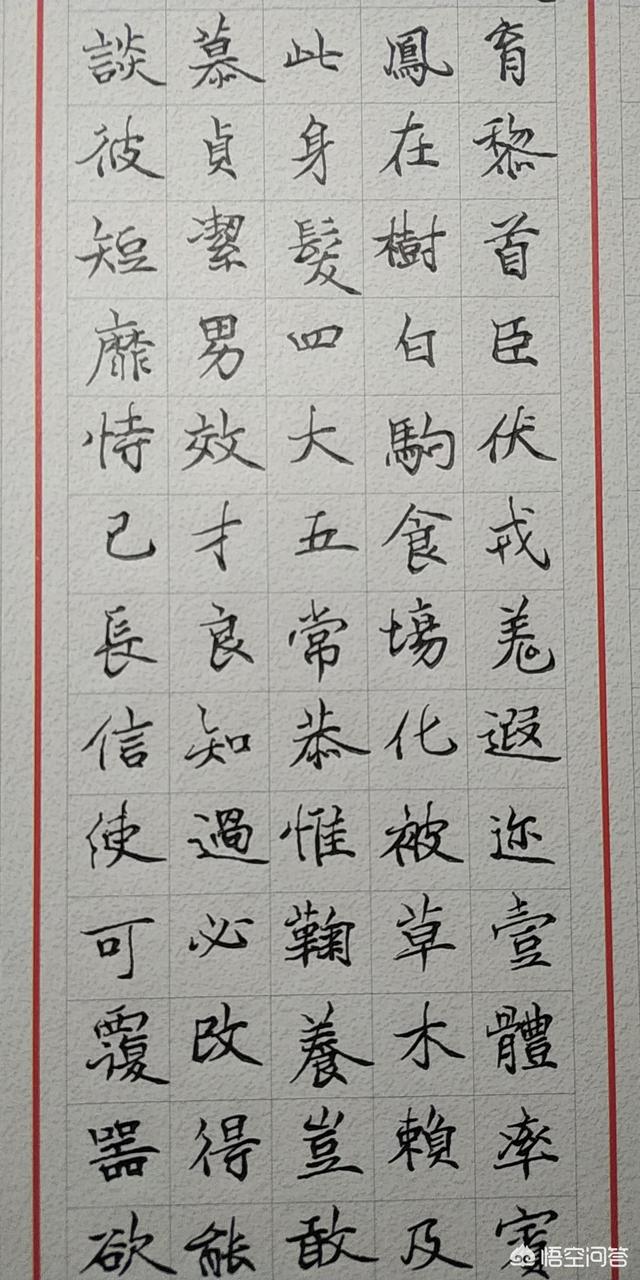 育黎首臣伏戎羌遐迩壹體率賓
鳳在樹白駒食場化被草木賴及
此身髮四大五常恭惟鞠養豈敢
慕貞潔男效才良知過必改得能
談彼短靡恃己長信使可覆器欲
悟空问答